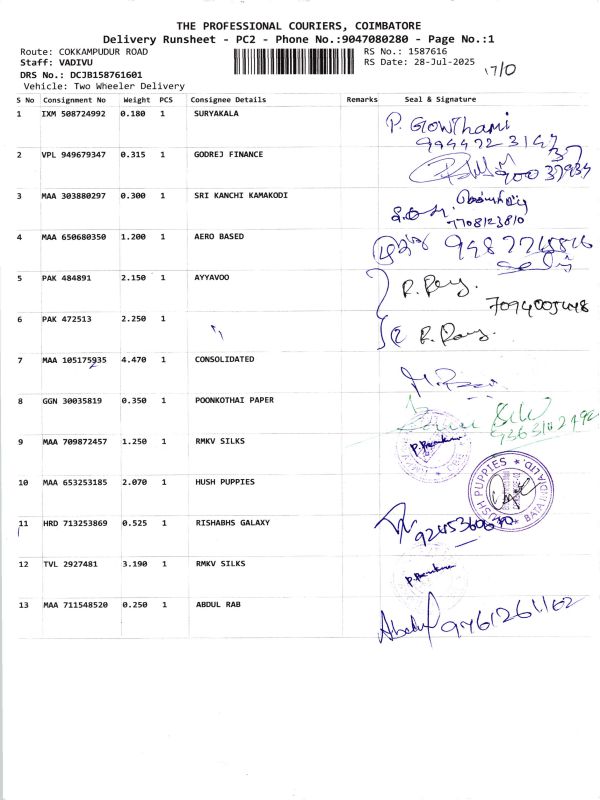 THE PROFESSIONAL COURIERS, COIMBATORE
Delivery Runsheet - PC2 - Phone No.:9047080280 - Page No.:1
Route: COKKAMPUDUR ROAD
RS No.: 1587616
Staff: VADIVU
RS Date: 28-Jul-2025
17/0
DRS No.: DCJB158761601
Vehicle: Two Wheeler Delivery
S No Consignment No Weight PCS Consignee Details Remarks Seal & Signature
1 IXM 508724992 0.180 1 SURYAKALA P. Gowthami
2 VPL 949679347 0.315 1 GODREJ FINANCE
3 MAA 303880297 0.300 1 SRI KANCHI KAMAKODI
7708123810
4 MAA 650680350 1.200 1 AERO BASED
5 PAK 484891 2.150 1 AYYAVOO R. Ray.
6 PAK 472513 2.250 1 R. Ray.
7 MAA 105175935 4.470 1 CONSOLIDATED
8 GGN 30035819 0.350 1 POONKOTHAI PAPER
9 MAA 709872457 1.250 1 RMKV SILKS
10 MAA 653253185 2.070 1 HUSH PUPPIES
HUSH PUPPIES
11 HRD 713253869 0.525 1 RISHABHS GALAXY
12 TVL 2927481 3.190 1 RMKV SILKS
13 MAA 711548520 0.250 1 ABDUL RAB
9761261162